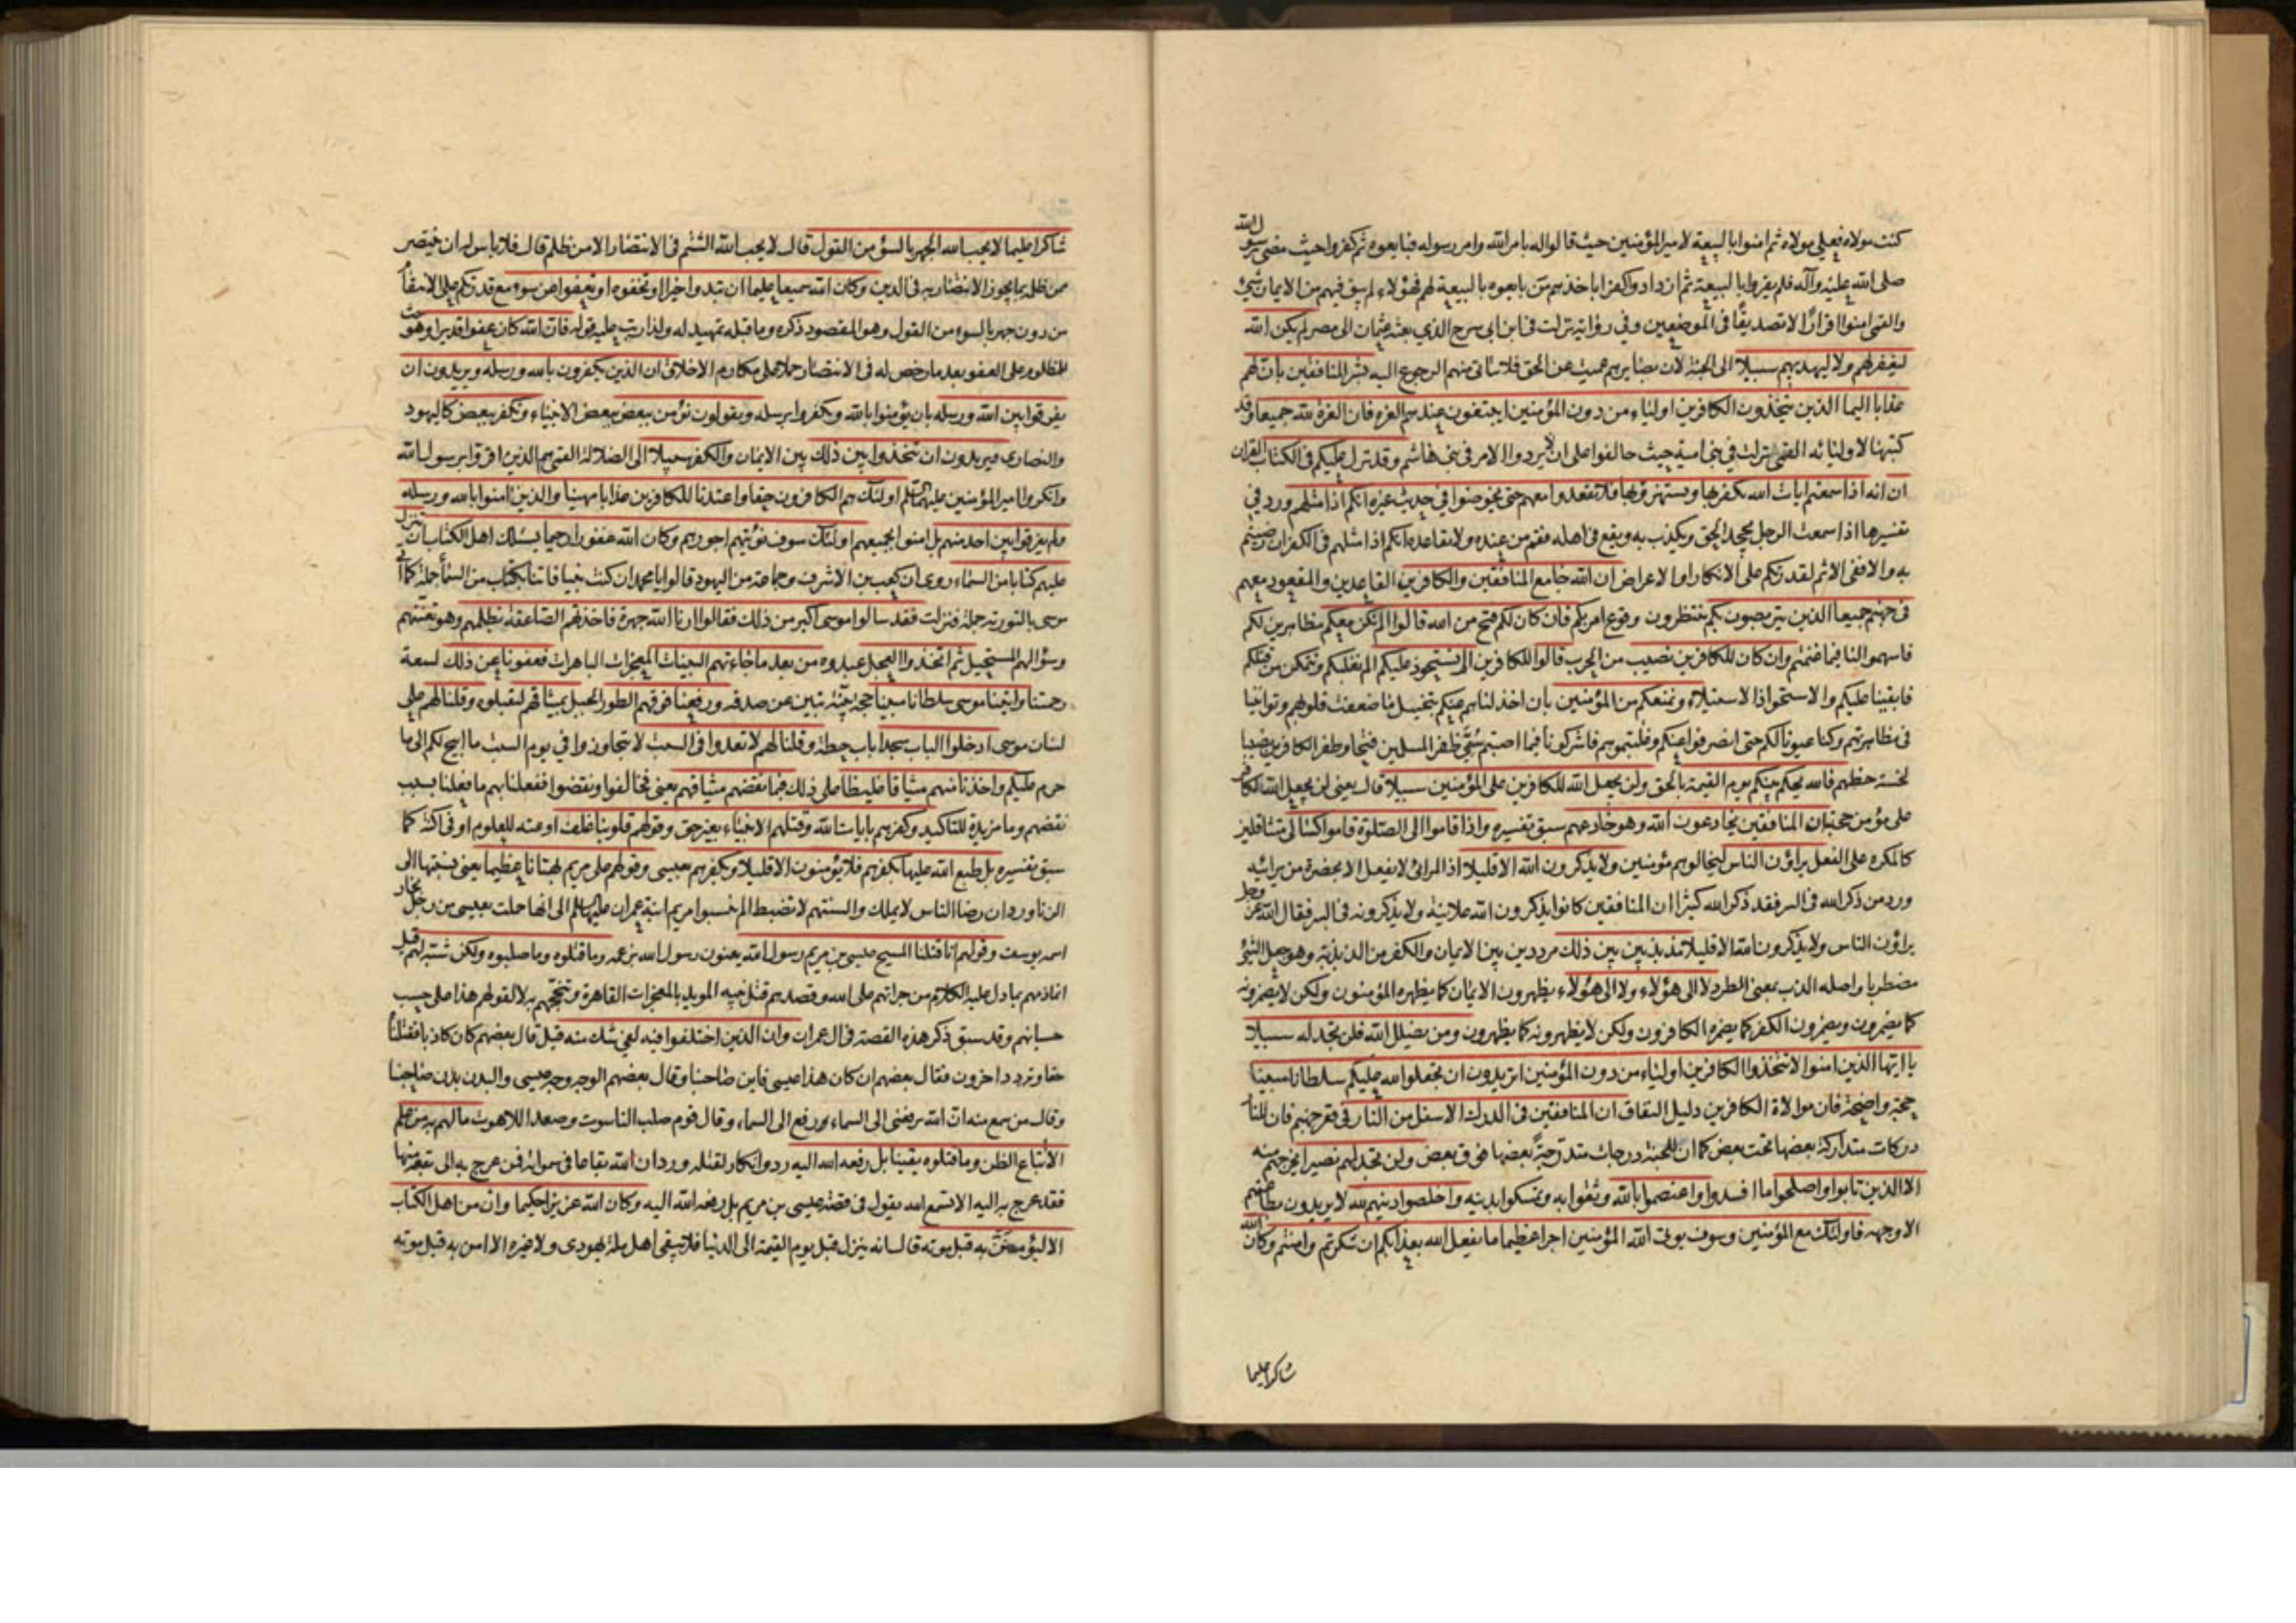 كنت مولاه فعلي مولاه ثم امنوا بالبيعة لامير المؤمنين حيث قالوا له بامر الله وامر رسوله فبايعوه ثم كفروا حيث مضى رسول الله
صلى الله عليه وآله فلم يقروا بالبيعة ثم ازدادوا كفرا باخذهم من بايعوه بالبيعة لهم فهؤلاء لم يبق فيهم من الايمان شئ
والقمى امنوا اقرارًا لا تصديقًا فى الموضعين وفى رواية نزلت فى ابن ابى سرح الذي بعثه عثمان الى مصر لم يكن الله
ليغفر لهم ولا ليهديهم سبيلا الى الجنة لان بصايرهم عميت عن الحق فلا يتاتى منهم الرجوع اليه بشر المنافقين بان لهم
عذابا اليما الذين يتخذون الكافرين اولياء من دون المؤمنين ايبتغون عندهم العزة فان العزة لله جميعا وقد
كتبها لاوليائه القمى نزلت فى بنى امية حيث حالفوا على ان لا يردوا الامر فى بنى هاشم وقد نزل عليكم فى الكتاب القران
ان انه اذا سمعتم ايات الله يكفر بها ويستهزء بها فلا تقعدوا معهم حتى يخوضوا فى حديث غيره انكم اذا مثلهم ورد فى
تفسيرها اذا سمعت الرجل يجحد الحق ويكذب به ويقع فى اهله فقم من عنده ولا تقاعده انكم اذا مثلهم فى الكفر ان رضيتم
به والا ففى الاثم لقدرتكم على الانكار او الاعراض ان الله جامع المنافقين والكافرين القاعدين والمقعود معهم
فى جهنم جميعا الذين يتربصون بكم ينتظرون وقوع امر بكم فان كان لكم فتح من الله قالوا الم نكن معكم مظاهرين لكم
فاسهموا لنا فيما غنمتم وان كان للكافرين نصيب من الحرب قالوا للكافرين الم نستحوذ عليكم الم نغلبكم ونتمكن من قتلكم
فابقينا عليكم والاستحواذ الاستيلاء ونمنعكم من المؤمنين بان اخذلناهم عنكم بتخييل ما ضعفت قلوبهم وتوانينا
فى مظاهرتهم وكنا عيونا لكم حتى انصرفوا عنكم وغلبتموهم فاشركونا فيما اصبتم سمى ظفر المسلمين فتحا وظفر الكافرين نصيبا
لخسة حظهم فالله يحكم بينكم يوم القيمة بالحق ولن يجعل الله للكافرين على المؤمنين سبيلا قال يعنى لن يجعل الله لكافر
على مؤمن حجة ان المنافقين يخادعون الله وهو خادعهم سبق تفسيره واذا قاموا الى الصلوة قاموا كسالى متثاقلين
كالمكره على الفعل يراؤن الناس ليخالوهم مؤمنين ولا يذكرون الله الا قليلا اذ المرائى لا يفعل الا بحضرة من يرائيه
ورد من ذكر الله فى السر فقد ذكر الله كثيرا ان المنافقين كانوا يذكرون الله علانية ولا يذكرونه فى السر فقال الله عز وجل
يراؤن الناس ولا يذكرون الله الا قليلا مذبذبين بين ذلك مرددين بين الايمان والكفر من الذبذبة وهو جعل الشئ
مضطربا واصله الذب بمعنى الطرد لا الى هؤلاء ولا الى هؤلاء يظهرون الايمان كما يظهره المؤمنون ولكن لا يضمرونه
كما يضمرون ويضمرون الكفر كما يضمره الكافرون ولكن لا يظهرونه كما يظهرون ومن يضلل الله فلن تجد له سبيلا
يا ايها الذين امنوا لا تتخذوا الكافرين اولياء من دون المؤمنين اتريدون ان تجعلوا لله عليكم سلطانا مبينا
حجة واضحة فان موالاة الكافرين دليل النفاق ان المنافقين فى الدرك الاسفل من النار فى قعر جهنم فان للنار
دركات متداركة بعضها تحت بعض كما ان للجنة درجات متدرجة بعضها فوق بعض ولن تجد لهم نصيرا يخرجهم منه
الا الذين تابوا واصلحوا ما افسدوا واعتصموا بالله وثقوا به وتمسكوا بدينه واخلصوا دينهم لله لا يريدون بطاعتهم
الا وجهه فاولئك مع المؤمنين وسوف يوتى الله المؤمنين اجرا عظيما ما يفعل الله بعذابكم ان شكرتم وامنتم وكان الله
شاكرا عليما
شاكرا عليما لا يحب الله الجهر بالسوء من القول قال لا يحب الله الشتم فى الانتصار الا من ظلم قال فلا باس له ان ينتصر
ممن ظلمه بما يجوز الانتصار به فى الدين وكان الله سميعا عليما ان تبدوا خيرا او تخفوه او تعفوا عن سوء مع قدرتكم على الانتقام
من دون جهر بالسوء من القول وهو المقصود ذكره وما قبله تمهيد له ولذا رتب عليه قوله فان الله كان عفوا قديرا وهو حث
المظلوم على العفو بعد ما رخص له فى الانتصار حملا على مكارم الاخلاق ان الذين يكفرون بالله ورسله ويريدون ان
يفرقوا بين الله ورسله بان يؤمنوا بالله ويكفروا برسله ويقولون نؤمن ببعض ببعض الانبياء ونكفر ببعض كاليهود
والنصارى ويريدون ان يتخذوا بين ذلك بين الايمان والكفر سبيلا الى الضلالة القمى هم الذين اقروا برسول الله
وانكروا امير المؤمنين عليهما السلم اولئك هم الكافرون حقا واعتدنا للكافرين عذابا مهينا والذين امنوا بالله ورسله
ولم يفرقوا بين احد منهم بل امنوا بجميعهم اولئك سوف نؤتيهم اجورهم وكان الله غفورا رحيما يسئلك اهل الكتاب ان تنزل
عليهم كتابا من السماء روى ان كعب بن الاشرف وجماعة من اليهود قالوا يا محمد ان كنت نبيا فاتنا بكتاب من السماء جملة كما اتى
موسى بالتورية جملة فنزلت فقد سالوا موسى اكبر من ذلك فقالوا ارنا الله جهرة فاخذتهم الصاعقة بظلمهم وهو تعنتهم
وسؤالهم المستحيل ثم اتخذوا العجل عبدوه من بعد ما جاءتهم البينات المعجزات الباهرات فعفونا عن ذلك لسعة
رحمتنا واتينا موسى سلطانا مبينا حجة بينة تبين عن صدقه ورفعنا فوقهم الطور الجبل بميثاقهم ليقبلوه وقلنا لهم على
لسان موسى ادخلوا الباب سجدا باب حطة وقلنا لهم لا تعدوا فى السبت لا تتجاوزوا فى يوم السبت ما ابيح لكم الى ما
حرم عليكم واخذنا منهم ميثاقا غليظا على ذلك فبما نقضهم ميثاقهم يعنى فخالفوا ونقضوا ففعلنا بهم ما فعلنا بسبب
نقضهم وما مزيدة للتاكيد وكفرهم بايات الله وقتلهم الانبياء بغير حق وقولهم قلوبنا غلف اوعية للعلوم او فى اكنة كما
سبق تفسيره بل طبع الله عليها بكفرهم فلا يؤمنون الا قليلا وبكفرهم بعيسى وقولهم على مريم بهتانا عظيما يعنى نسبتها الى
الزنا ورد ان رضا الناس لا يملك والسنتهم لا تضبط الم ينسبوا مريم ابنة عمران عليها السلم الى انها حملت بعيسى من رجل نجار
اسمه يوسف وقولهم انا قتلنا المسيح عيسى بن مريم رسول الله يعنون رسول الله بزعمه وما قتلوه وما صلبوه ولكن شبه لهم قيل
انما ذمهم بما دل عليه الكلام من جراتهم على الله وقصدهم قتل نبيه المويد بالمعجزات القاهرة وتبجحهم به لا لقولهم هذا على حسب
حسبانهم وقد سبق ذكر هذه القصة فى ال عمران وان الذين اختلفوا فيه لفى شك منه قيل قال بعضهم كان كاذبا فقتلناه
حقا وتردد اخرون فقال بعضهم ان كان هذا عيسى فاين صاحبنا وقال بعضهم الوجه وجه عيسى والبدن بدن صاحبنا
وقال من سمع منه ان الله يرفعنى الى السماء رفع الى السماء وقال قوم صلب الناسوت وصعد اللاهوت ما لهم به من علم
الا اتباع الظن وما قتلوه يقينا بل رفعه الله اليه رد وانكار لقتله ورد ان لله بقاعا فى سمواته فمن عرج به الى بقعة منها
فقد عرج به اليه الا تسمع الله يقول فى قصة عيسى بن مريم بل رفعه الله اليه وكان الله عزيزا حكيما وان من اهل الكتاب
الا ليؤمنن به قبل موته قال انه ينزل قبل يوم القيمة الى الدنيا فلا يبقى اهل ملة يهودى ولا غيره الا امن به قبل موته